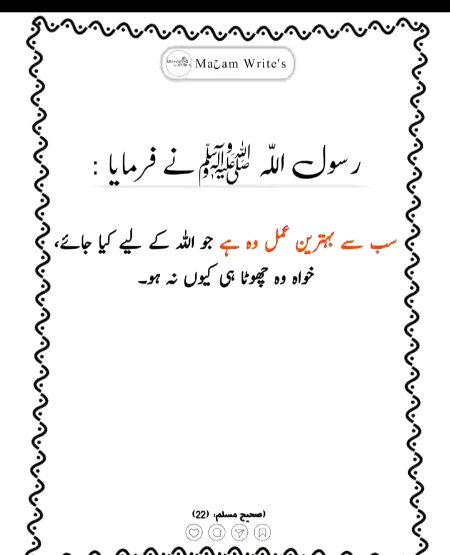 Mazam Write's
رسول اللّٰہ ﷺ نے فرمایا :
سب سے بہترین عمل وہ ہے جو اللہ کے لیے کیا جائے،
خواہ وہ چھوٹا ہی کیوں نہ ہو۔
(صحیح مسلم: 22)